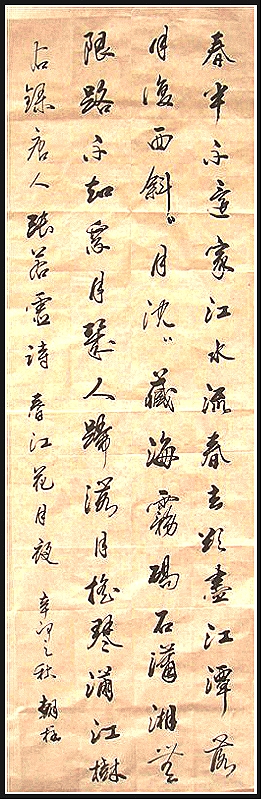 春半不還家江水流春去欲盡江潭落
月復西斜〃月沈〃藏海霧碣石瀟湘無
限路不知乘月幾人歸落月搖琴滿江樹
錄唐人張若虛詩春江花月夜 辛卯之秋 朝